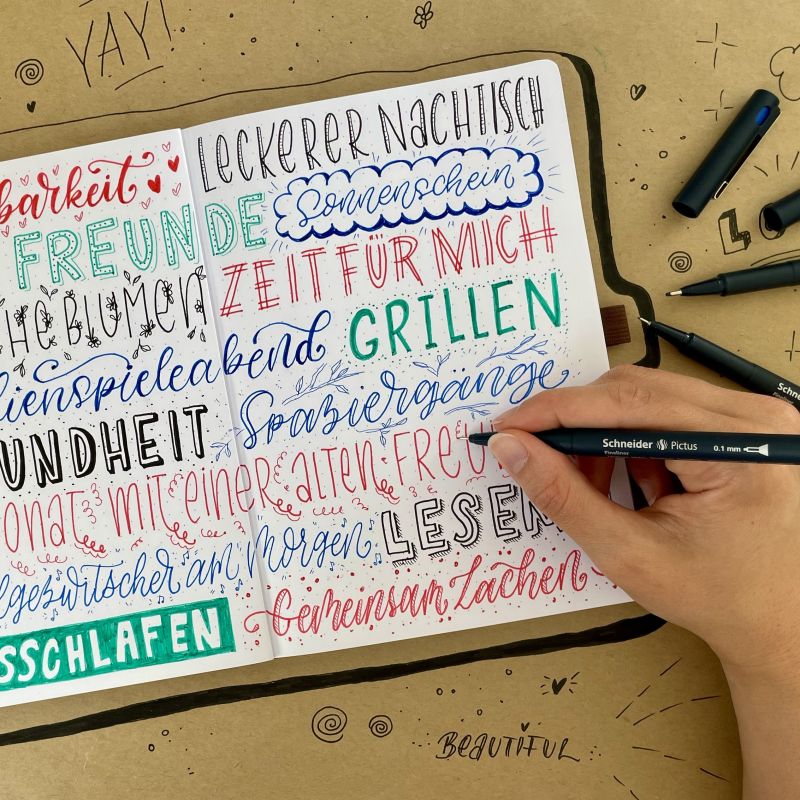 YAY!
LECKERER NACHTISCH
barkeit
Sonnenschein
FREUNDE
ZEIT FÜR MICH
HE BLUMEN
GRILLEN
lienspieleabend
Spaziergänge
UNDHEIT
onat mit einer alten FREU
LESEN
lgezwitscher am Morgen
Gemeinsam Lachen
SSCHLAFEN
Schneider Pictus 0.1 mm
Fineliner
BEAUTIFUL